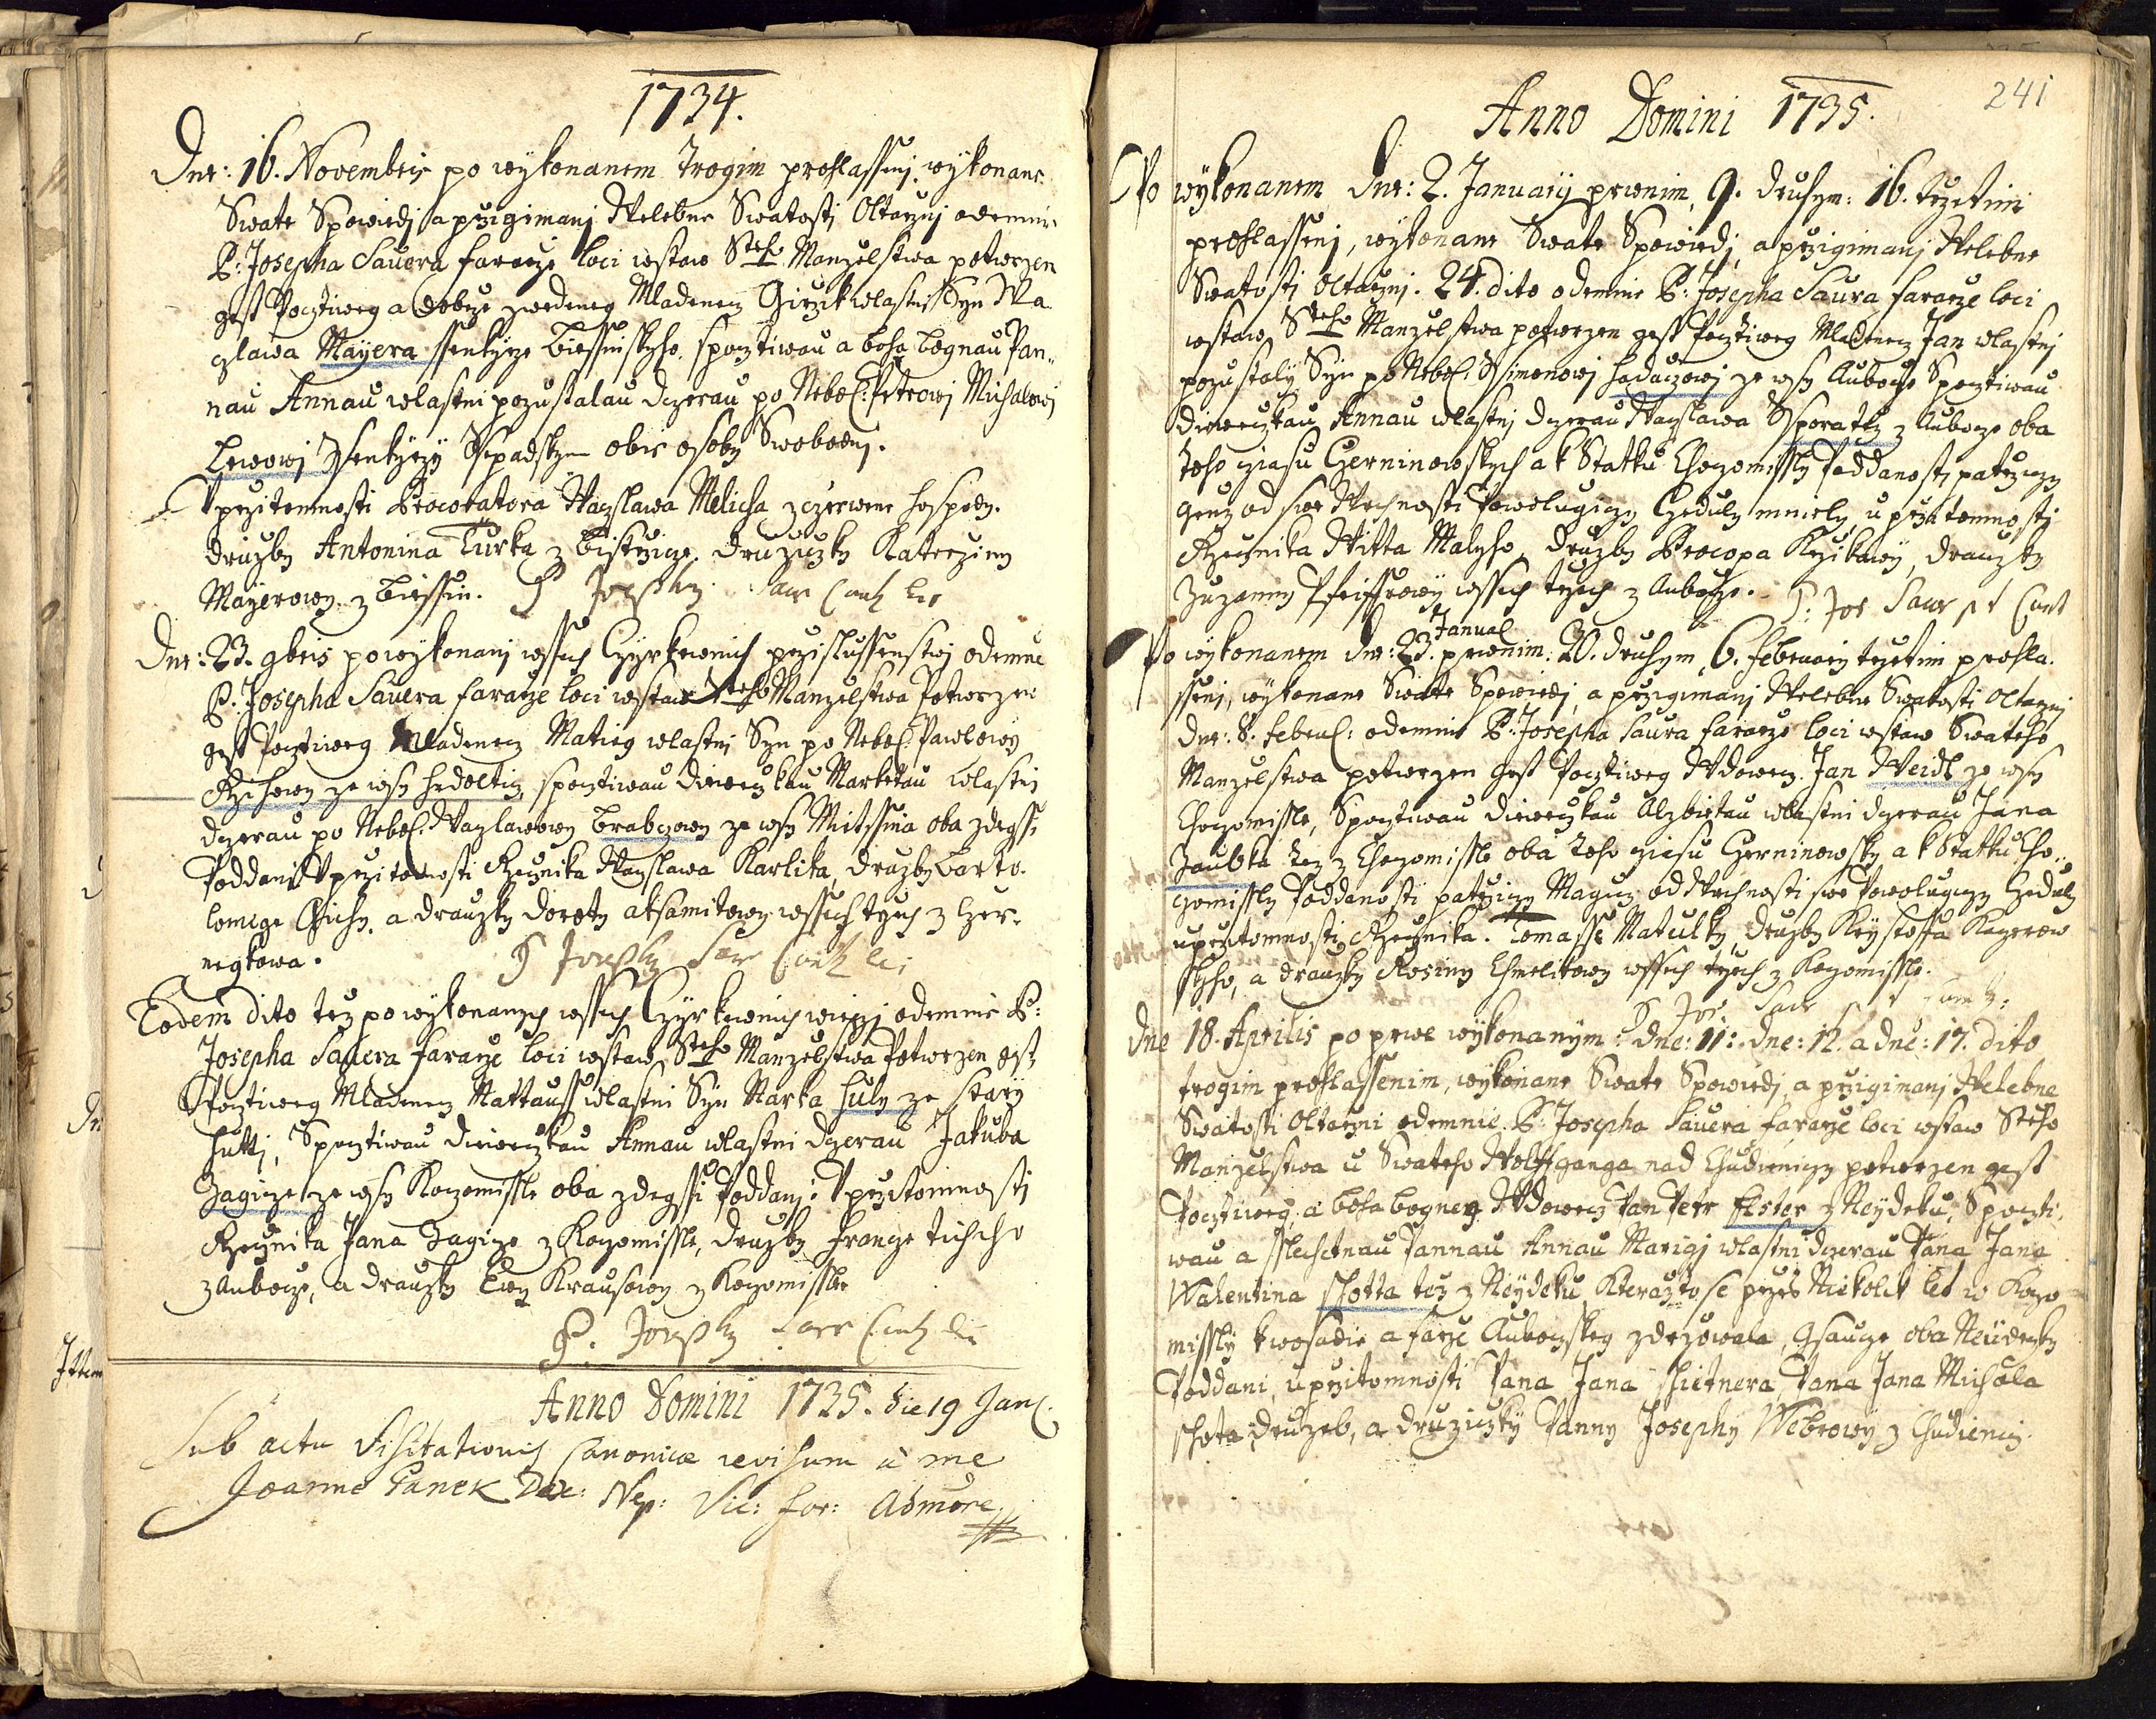 1734.
Dne: 16. Novembris po wykonanem trogim prohlassenj, wykonane
Swate Spowiedj a przigimanj Welebne Swatosti Oltarznj odemnie
P: Josepha Sauera fararze loci wstaw Steho Manzelstwa potwrzen
gest Pocztiweg a dobrze zwedeneg Mladenecz Girzik wlastnj Syn Wa
czlawa Mayera ssenkyrze Biessinskyho, spocztiwau a boha bognau Pan-
nau Annau wlastni pozustalau dczerau po Nebol: Petrowj Michalowj
Lewowj Ssenkyrzy Sspadskym obie osoby Swobodnj.
Vprzitomnosti Procoratora Waczlawa Melicha z czerwene hospody.
druzby Antonina Turka z Bistrzicze. druziczky Katerziny
Mayerowy z Biessin. P Josephus Saur Curatus loci
Dne: 23. 9bris powykonanj wssech Czyrkewnich przislussenstwj odemne
P. Josepha Sauera faraze loci wstaw Steho Manzelstwa Potwrzen
gest Pocztiweg Mladenecz Matieg wlastni Syn po Nebol: Pawlowy
Rzihowy ze wsy hodoltiz, spocztiwau diweczkau Marketau wlastni
dczerau po Nebol: Waczlawowy Brabczowy ze wsy Mitzssina oba zdegssi
Poddani Vprzitomnosti Rzecznika Waczlawa Karlika, druzby Barto-
lomege Czichy, a drauzky doroty aksamitowy wssech tziech z Czer-
negkowa. P Josephus Saur Curatus loci
Eodem dito tez po wykonanych wssech Czyrkewnich wieczj odemnie P:
Josepha Sauera faraze loci wstaw Steho Manzelstwa Potwrzen gest
Pocztiweg Mladenecz Mattauss wlastni Syn Marka huly ze stary
hutti, Spocztiwau diweczkau Annau wlastni dczerau Jakuba
Zagicze ze wsy Koczomissle oba zdegssi Poddanj: Vprzitomnosti
Rzecznika Jana Zagicze z Koczomissle, druzby france Ticheho
z Aubocze, a drauzky Ewy Krausowy z Koczomissle
P. Josephus Saur Curatus loci
Anno Domini 1735. die 19 Jan:
Sub actu Visitationis canonicae revisum à me
Joanne Panek Dec: Nep: Vic: For: admore
241
Anno Domini 1735.
Po wykonanem dne: 2. Januarÿ prwnim, 9. druhym: 16. trzetim
prohlassenj, wykonane Swate Spowiedj, a przigimanj Welebne
Swatosti Oltarznj. 24. dito odemnie P: Josepha Saura faraze loci
wstaw Steho Manzelstwa potwrzen gest Pocztiweg Mladenecz Jan wlastnj
pozustalÿ Syn po Nebol: Ssimonowj hadaczowj ze wsy Aubocze Spocztiwau
diweczkau Annau wlastnj dczerau Waczlawa Ssporatky z Aubocze oba
toho cziasu Czerninowskych a k Statku Choczomissly Poddanosti patrziczy
genz od swe Wrchnosti Powolugiczy Czeduly mniely, uprzitomnosti
Rzecznika Witta Malyho, druzby Procopa Krzikawy, drauzky
Zuzanny Pfeiffrowy wssech trzech z Aubocze. P: Jos Saur pt Curt
Januar
Po wykonanem dne: 23. prwnim: 30. druhym, 6. february trzetim prohla-
ssenj, wykonane Swate Spowiedj, a przigimanj Welebne Swatosti Oltarznj
dne: 8. februar: odemnie P: Josepha Saura faraze loci wstaw Swateho
Manzelstwa potwrzen gest Pocztiweg Wdowecz Jan Weidl ze wsy
Choczomissle, Spocztiwau diweczkau Alzbietau wlastni dczerau Jana
Zaubka tez z Choczomissle oba toho cziasu Czerninowsky a k Statku Cho-
czomissly Poddanosti patrziczy Magicz od Wrchnosti swe Powolugiczy Czeduly
uprzitomnosti Rzecznika. Tomasse Matulky, druzby Krystoffa Kayserow
skyho, a drauzky Rosiny Chmelikowy wssech trzech z Koczomissle.
P Jos: Saur pt Curat:
Dne 18. Aprilis po prwe wykonanym: dne: 11: dne: 12. a dne: 17. dito
trogim prohlassenim, wykonane Swate Spowiedj, a przigimanj Welebne
Swatosti Oltarzni odemnie P: Josepha Sauera faraze loci wstaw Steho
Manzelstwa u Swateho Wolffganga nad Chudieniczy potwrzen gest
Pocztiweg, a boha bogneg Wdowecz Pan Petr Elster z Neydeku, Spoczti-
wau a sslechetnau Pannau Annau Marigj wlastni dczerau Pana Jana
Walentina Schotta tez z Neydeku Kterazto se przes Niekolik let w Koczo
missly k wosadie a farze Aubocskeg zdrzowala, Gsaucze oba Neÿdecky
Poddani, uprzitomnosti Pana Jana Schietnera, Pana Jana Michala
Schota, druzeb, a druziczky Panny Josephy Webrowy z Chudienicz.